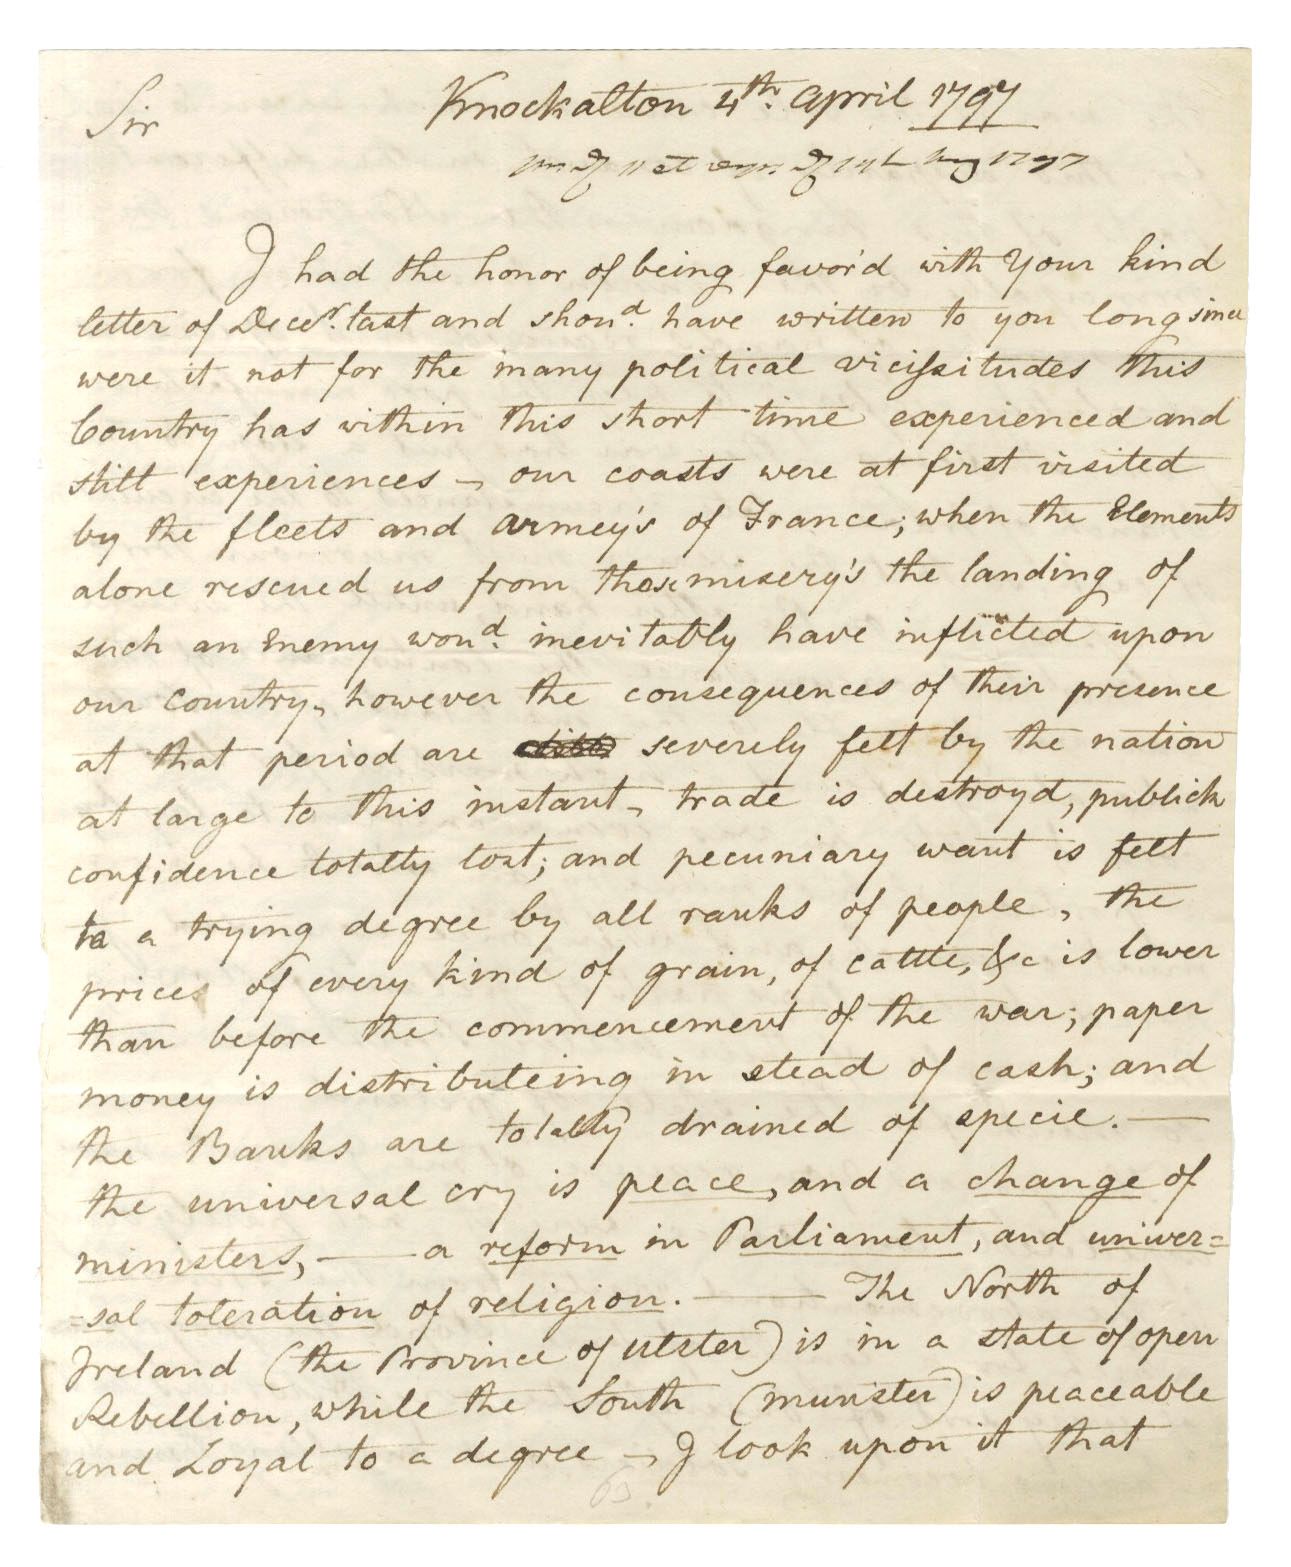 Knockalton 4th. April 1797
Sir
1797
I had the honor of being favor'd with Your kind
letter of Decer. last and shoud. have written to you long since
were it not for the many political vicissitudes this
Country has within this short time experienced and
still experiences - our coasts were at first visited
by the fleets and armey's of France; when the Elements
alone rescued us from those misery's the landing of
such an Enemy woud. inevitably have inflicted upon
our Country, however the consequences of their presence
at that period are severely felt by the nation
at large to this instant, trade is destroyd, publick
confidence totally lost; and pecuniary want is felt
to a trying degree by all ranks of people, the
prices of every kind of grain, of cattle, &c is lower
than before the commencement of the war; paper
money is distributeing in stead of cash; and
the Banks are totally drained of specie. —
the universal cry is peace, and a change of
ministers, — a reform in Parliament, and univer=
=sal toleration of religion. — The North of
Ireland (the Province of Ulster) is in a state of open
Rebellion, while the South (munster) is peaceable
and Loyal to a degree - I look upon it that